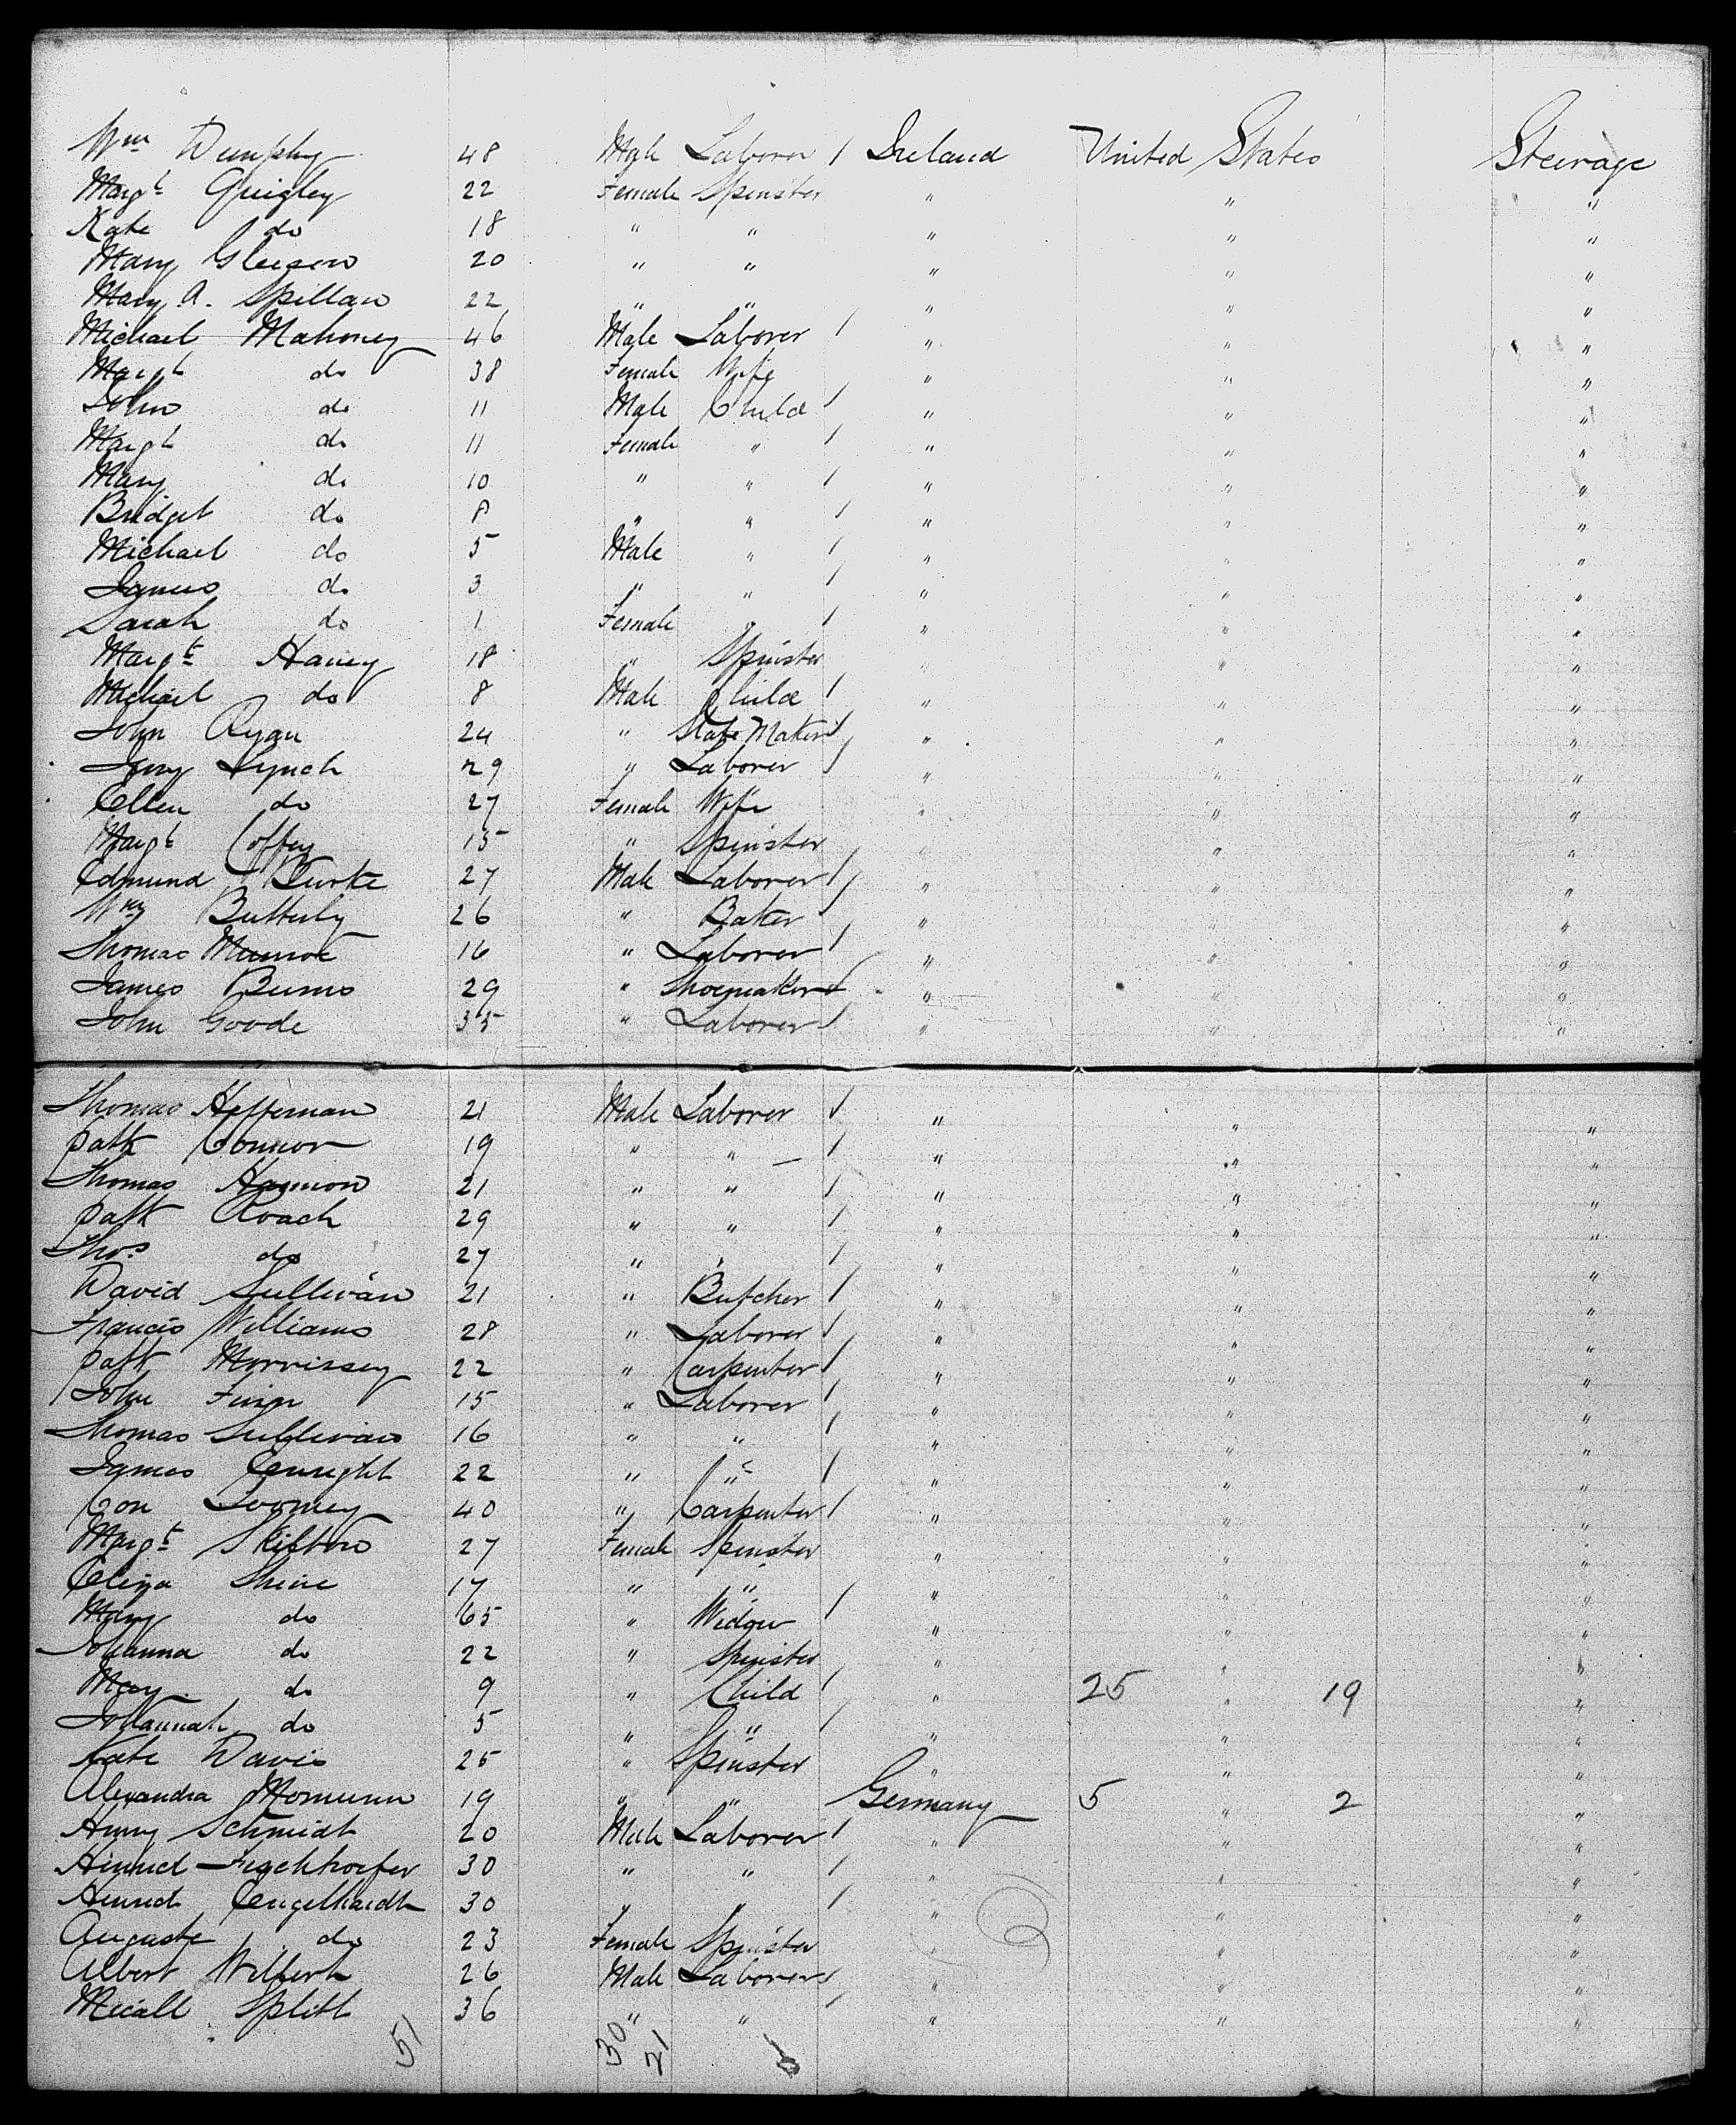 Wm Dunphy 48 Male Laborer / Ireland United States Steerage
Margt Quigley 22 Female Spinster " " "
Kate do 18 " " " " "
Mary Gleeson 20 " " " " "
Mary A. Spillan 22 " " " " "
Michael Mahoney 46 Male Laborer / " " "
Margt do 38 Female Wife " " "
John do 11 Male Child / " " "
Margt do 11 Female " / " " "
Mary do 10 " " / " " "
Bridget do 8 " " / " " "
Michael do 5 Male " / " " "
James do 3 " " / " " "
Sarah do 1 Female " / " " "
Margt Haney 18 " Spinster " " "
Michael do 8 Male Child / " " "
John Ryan 24 " Slate Maker / " " "
Jerry Lynch 29 " Laborer / " " "
Ellen do 27 Female Wife " " "
Margt Coffey 15 " Spinster " " "
Edmund Burke 27 Male Laborer / " " "
Wm Butterly 26 " Baker / " " "
Thomas Munroe 16 " Laborer / " " "
James Burns 29 " Shoemaker / " " "
John Goode 35 " Laborer / " " "
Thomas Heffernan 21 Male Laborer / " " "
Patk Connor 19 " " / " " "
Thomas Hannon 21 " " / " " "
Patk Roach 29 " " / " " "
Thos do 27 " " / " " "
David Sullivan 21 " Butcher / " " "
Francis Williams 28 " Laborer / " " "
Patk Morrissey 22 " Carpenter / " " "
John Finn 15 " Laborer / " " "
Thomas Sullivan 16 " " / " " "
James Enright 22 " " / " " "
Con Loomey 40 " Carpenter / " " "
Margt Skifton 27 Female Spinster " " "
Eliza Shine 17 " " " " "
Mary do 65 " Widow / " " "
Johanna do 22 " Spinster " " "
May do 9 " Child / " 25 " 19 "
Johannah do 5 " " / " " "
Kate Davis 25 " Spinster " " "
Alexandra 19 " " Germany 5 " 2 "
Henry Schmidt 20 Male Laborer / " " "
30 " " / " " "
Engelhardt 30 " " / " " "
Auguste do 23 Female Spinster " " "
Albert 26 Male Laborer / " " "
Splitt 36 " " / " " "
51 30 21